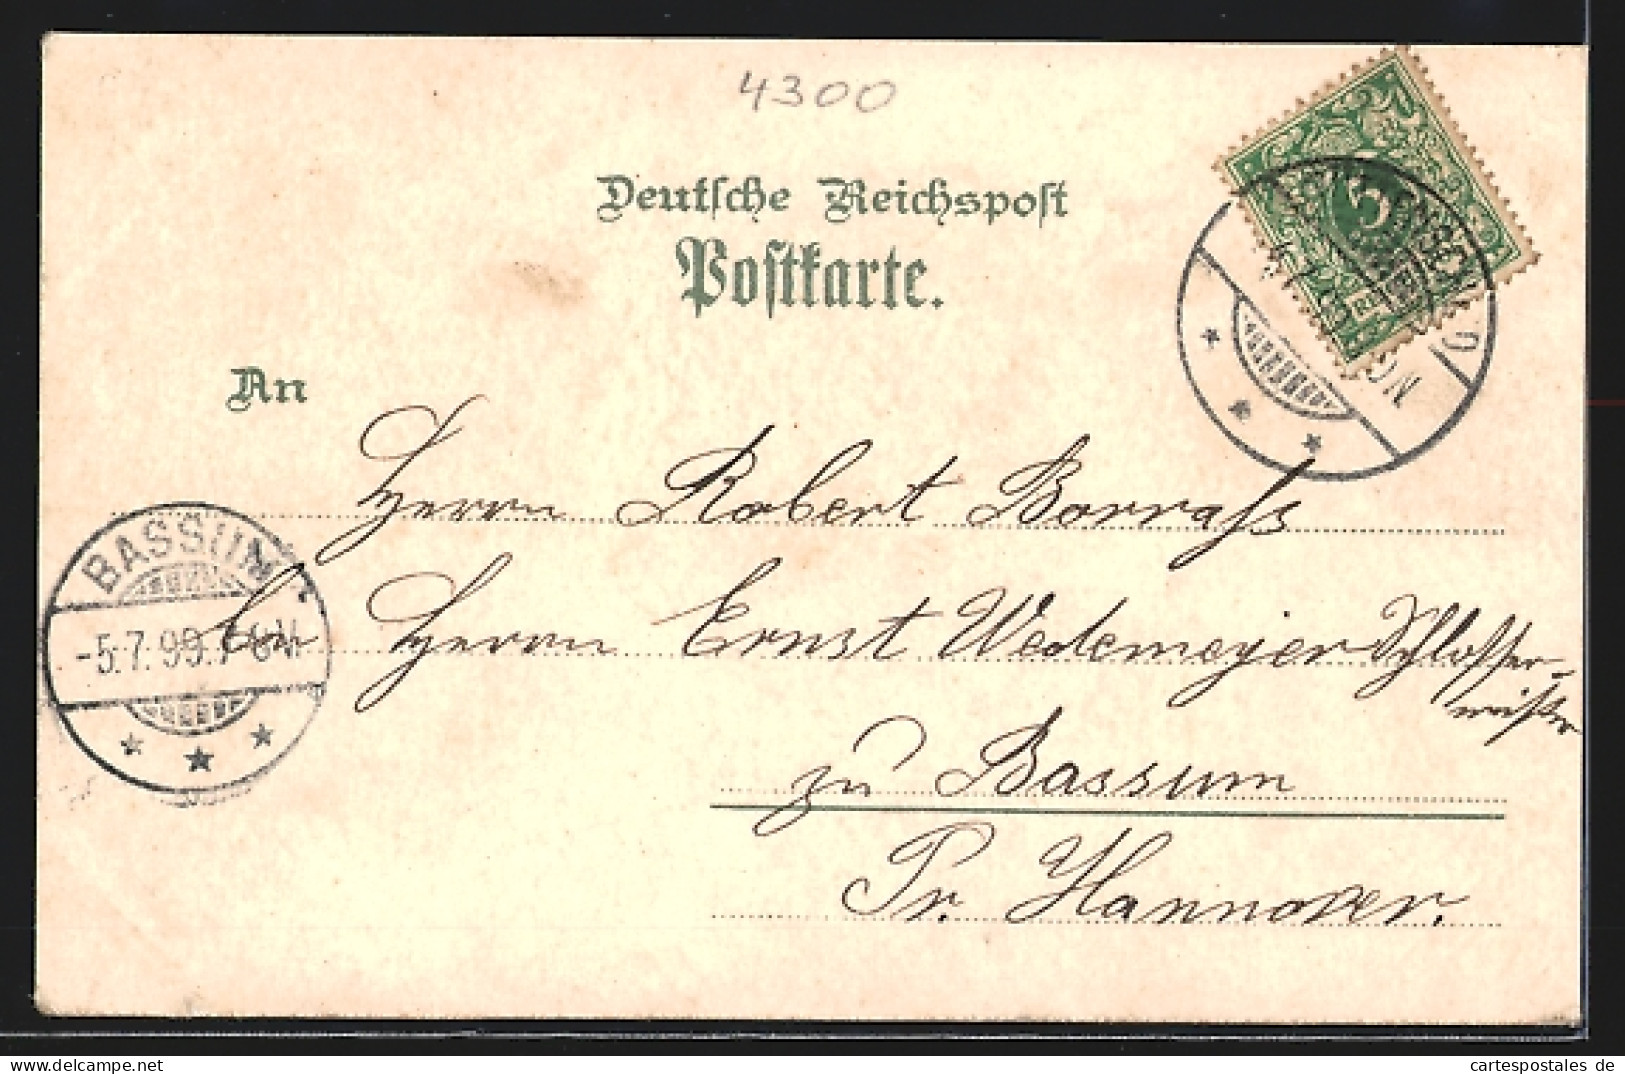 4300
Deutsche Reichspost
Postkarte.
5
An
Herrn Robert Borrass
BASSUM
-5.7.99.7-8V.
bei Herrn Ernst Wedemeyer Schlosser-
meister
zu Bassum
Pr. Hannover.
www.cartespostales.de